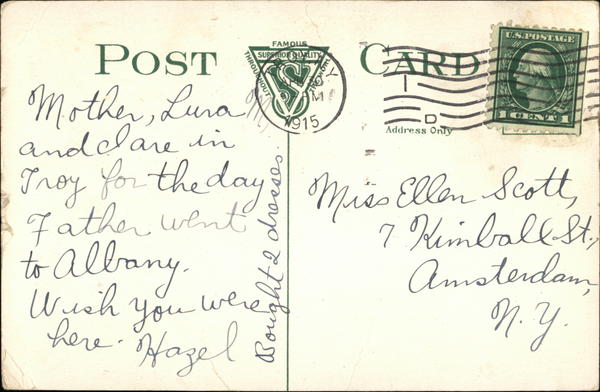 POST CARD
FAMOUS
SUPERIOR QUALITY
THROUGHOUT
VS
Y
M
1915
D
Address Only
U.S. POSTAGE
1 CENT 1
Mother, Lura M,
and Clare in
Troy for the day
Father went
to Albany.
Wish you were
here. Hazel
Bought 2 dresses.
Miss Ellen Scott,
7 Kimball St.,
Amsterdam,
N.Y.